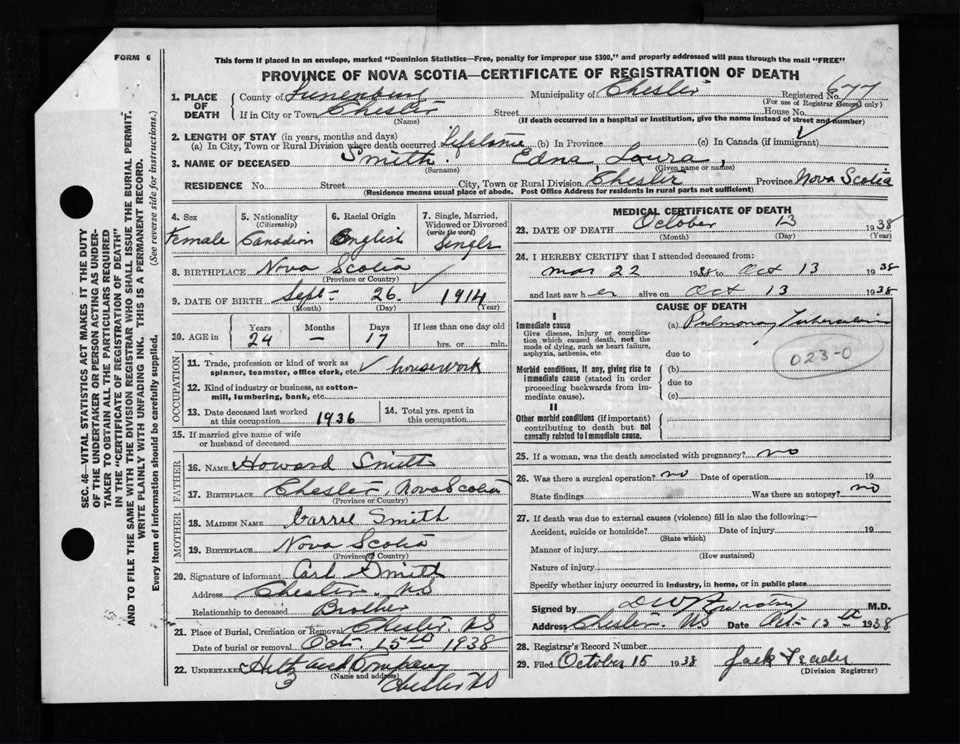 FORM 6
This form if placed in an envelope, marked "Dominion Statistics—Free, penalty for improper use $300," and properly addressed will pass through the mail "FREE"
PROVINCE OF NOVA SCOTIA—CERTIFICATE OF REGISTRATION OF DEATH
1. PLACE OF DEATH
County of Lunenburg Municipality of Chester Registered No. 677
(For use of Registrar General only)
If in City or Town Chester Street House No.
(Name) (If death occurred in a hospital or institution, give the name instead of street and number)
2. LENGTH OF STAY (in years, months and days)
(a) In City, Town or Rural Division where death occurred Lifetime (b) In Province (c) In Canada (if immigrant)
3. NAME OF DECEASED Smith Edna Loura,
(Surname) (Given name or names)
RESIDENCE No. Street City, Town or Rural Division Chester Province Nova Scotia
(Residence means usual place of abode. Post Office Address for residents in rural parts not sufficient)
4. Sex
Female
5. Nationality (Citizenship)
Canadian
6. Racial Origin
English
7. Single, Married, Widowed or Divorced (write the word)
Single
8. BIRTHPLACE Nova Scotia
(Province or Country)
9. DATE OF BIRTH Sept 26. 1914
(Month) (Day) (Year)
10. AGE in Years Months Days If less than one day old
24 — 17 hrs. or min.
OCCUPATION
11. Trade, profession or kind of work as spinner, teamster, office clerk, etc. housework
12. Kind of industry or business, as cotton-mill, lumbering, bank, etc.
13. Date deceased last worked at this occupation 1936
14. Total yrs. spent in this occupation
15. If married give name of wife or husband of deceased
FATHER
16. NAME Howard Smith
17. BIRTHPLACE Chester, Nova Scotia
(Province or Country)
MOTHER
18. MAIDEN NAME Carrie Smith
19. BIRTHPLACE Nova Scotia
(Province or Country)
20. Signature of informant Carl Smith
Address Chester NS
Relationship to deceased Brother
21. Place of Burial, Cremation or Removal Chester NS
Date of burial or removal Oct 15th 1938
22. UNDERTAKER and Company
(Name and address) Chester NS
3
MEDICAL CERTIFICATE OF DEATH
23. DATE OF DEATH October 13 1938
(Month) (Day) (Year)
24. I HEREBY CERTIFY that I attended deceased from:
Mar 22 1938 to Oct 13 1938
and last saw her alive on Oct 13 1938
CAUSE OF DEATH
I
Immediate cause
Give disease, injury or complication which caused death, not the mode of dying, such as heart failure, asphyxia, asthenia, etc.
(a) Pulmonary Tuberculosis
due to
023-0
Morbid conditions, if any, giving rise to immediate cause (stated in order proceeding backwards from immediate cause).
(b)
due to
(c)
II
Other morbid conditions (if important) contributing to death but not causally related to immediate cause.
25. If a woman, was the death associated with pregnancy? no
26. Was there a surgical operation? no Date of operation 19
State findings Was there an autopsy? no
27. If death was due to external causes (violence) fill in also the following:—
Accident, suicide or homicide? Date of injury 19
(State which)
Manner of injury
(How sustained)
Nature of injury
Specify whether injury occurred in industry, in home, or in public place
Signed by M.D.
Address Chester. NS Date Oct 15th 1938
28. Registrar's Record Number
29. Filed October 15 1938 Jack
(Division Registrar)
SEC. 46—VITAL STATISTICS ACT MAKES IT THE DUTY
OF THE UNDERTAKER OR PERSON ACTING AS UNDERTAKER
TO OBTAIN ALL THE PARTICULARS REQUIRED
IN THE "CERTIFICATE OF REGISTRATION OF DEATH"
AND TO FILE THE SAME WITH THE DIVISION REGISTRAR WHO SHALL ISSUE THE BURIAL PERMIT.
WRITE PLAINLY WITH UNFADING INK. THIS IS A PERMANENT RECORD.
Every item of information should be carefully supplied. (See reverse side for instructions.)